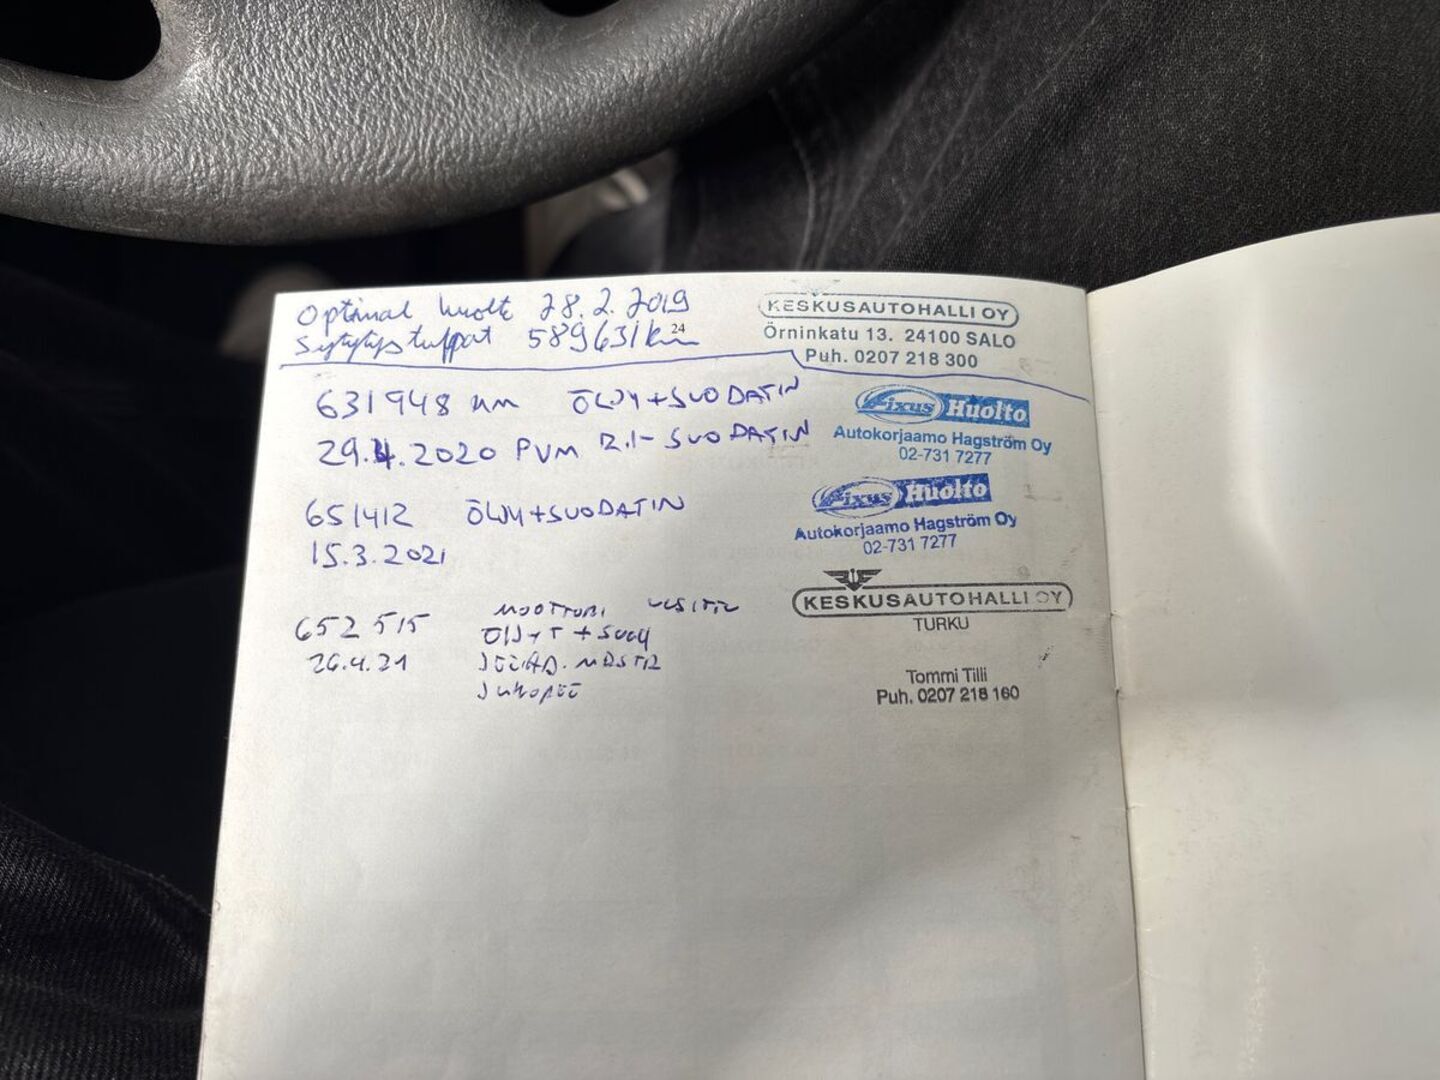 Optimal huolt 28.2.2019
Sytytystulpat 589631 km
24
KESKUSAUTOHALLI OY
Örninkatu 13. 24100 SALO
Puh. 0207 218 300
631948 km ÖLJY+SUODATIN
29.4.2020 PVM R.I-SUODATIN
Fixus Huolto
Autokorjaamo Hagström Oy
02-731 7277
651412 ÖLJY+SUODATIN
15.3.2021
Fixus Huolto
Autokorjaamo Hagström Oy
02-731 7277
652 515 MOOTTORI
26.4.21
KESKUSAUTOHALLI OY
TURKU
Tommi Tilli
Puh. 0207 218 160